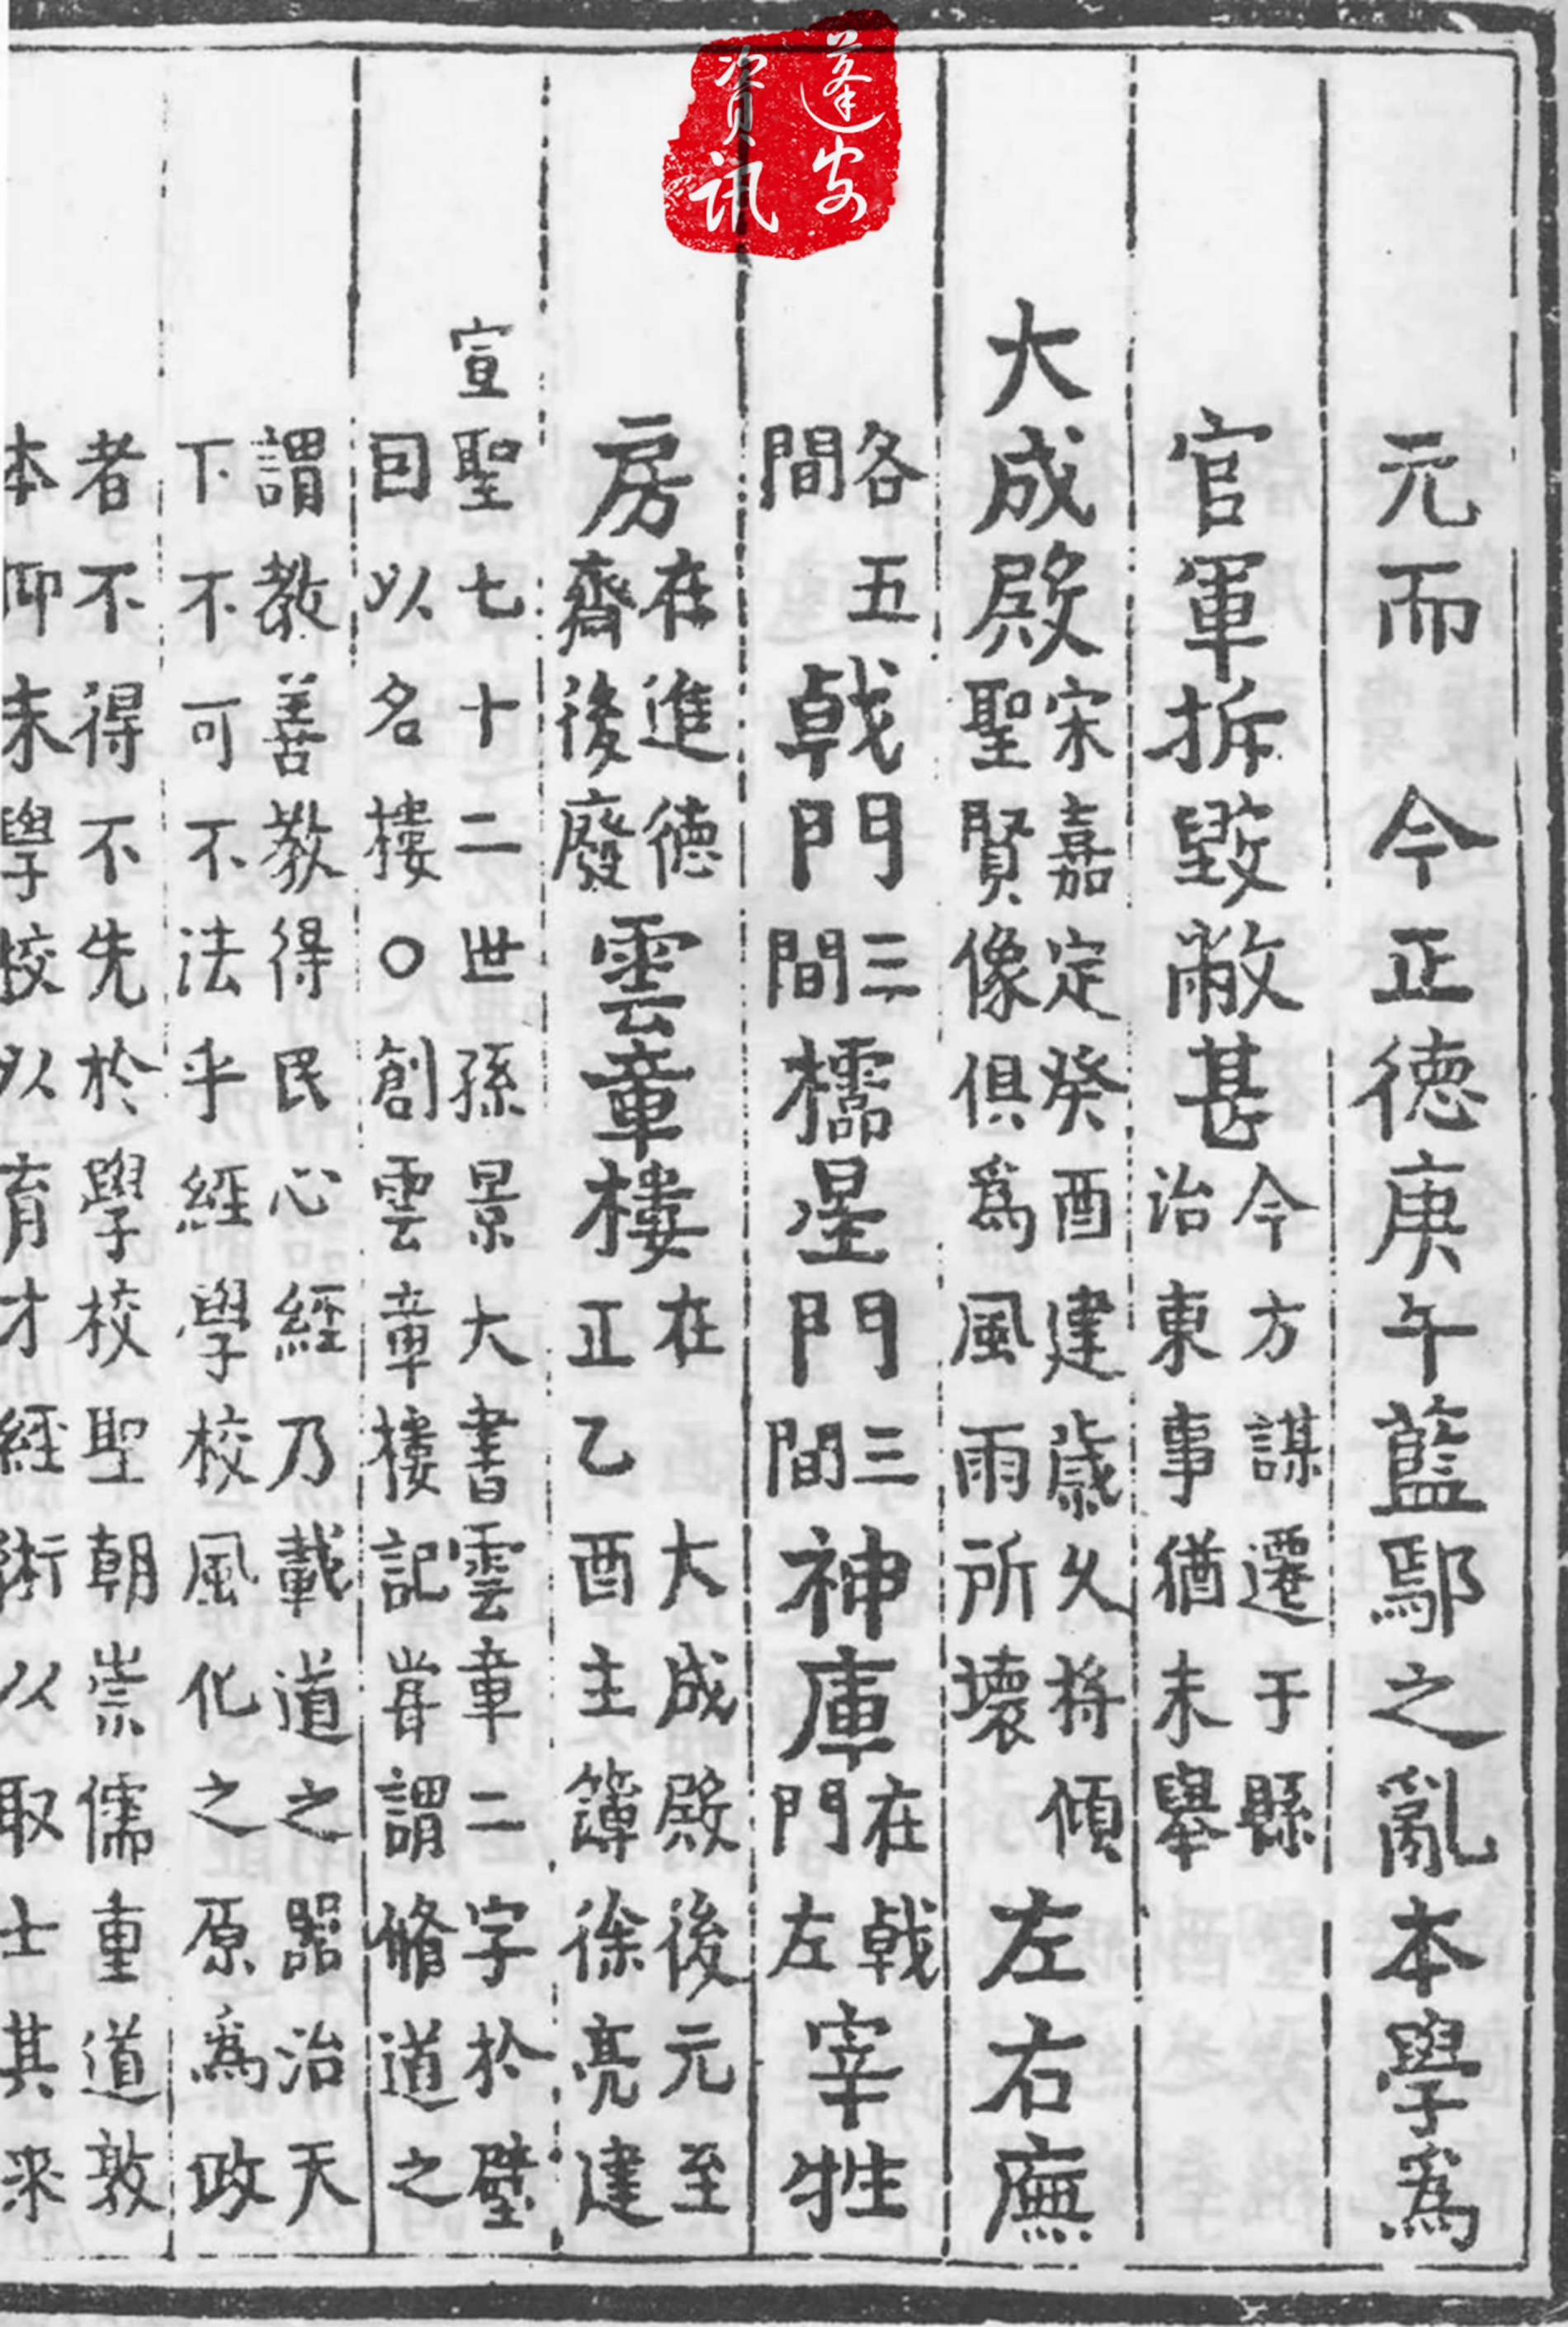 蓬安
資訊
元而　今正德庚午藍鄢之亂本學爲
官軍拆毀敝甚今方謀遷于縣
治東事猶未舉
大成殿宋嘉定癸酉建歲久將傾
聖賢像俱爲風雨所壞
左右廡
各五
間
戟門三
間
欞星門三
間
神庫在戟
門左
宰牲
房在進德
齋後廢
雲章樓在　大成殿後元至
正乙酉主簿徐亮建
宣聖七十二世孫景大書雲章二字於壁
囙以名樓○創雲章樓記甞謂脩道之
謂教善教得民心經乃載道之器治天
下不可不法乎經學校風化之原爲政
者不得不先於學校聖朝崇儒重道敦
本仰末學校以育才經術以取士其来